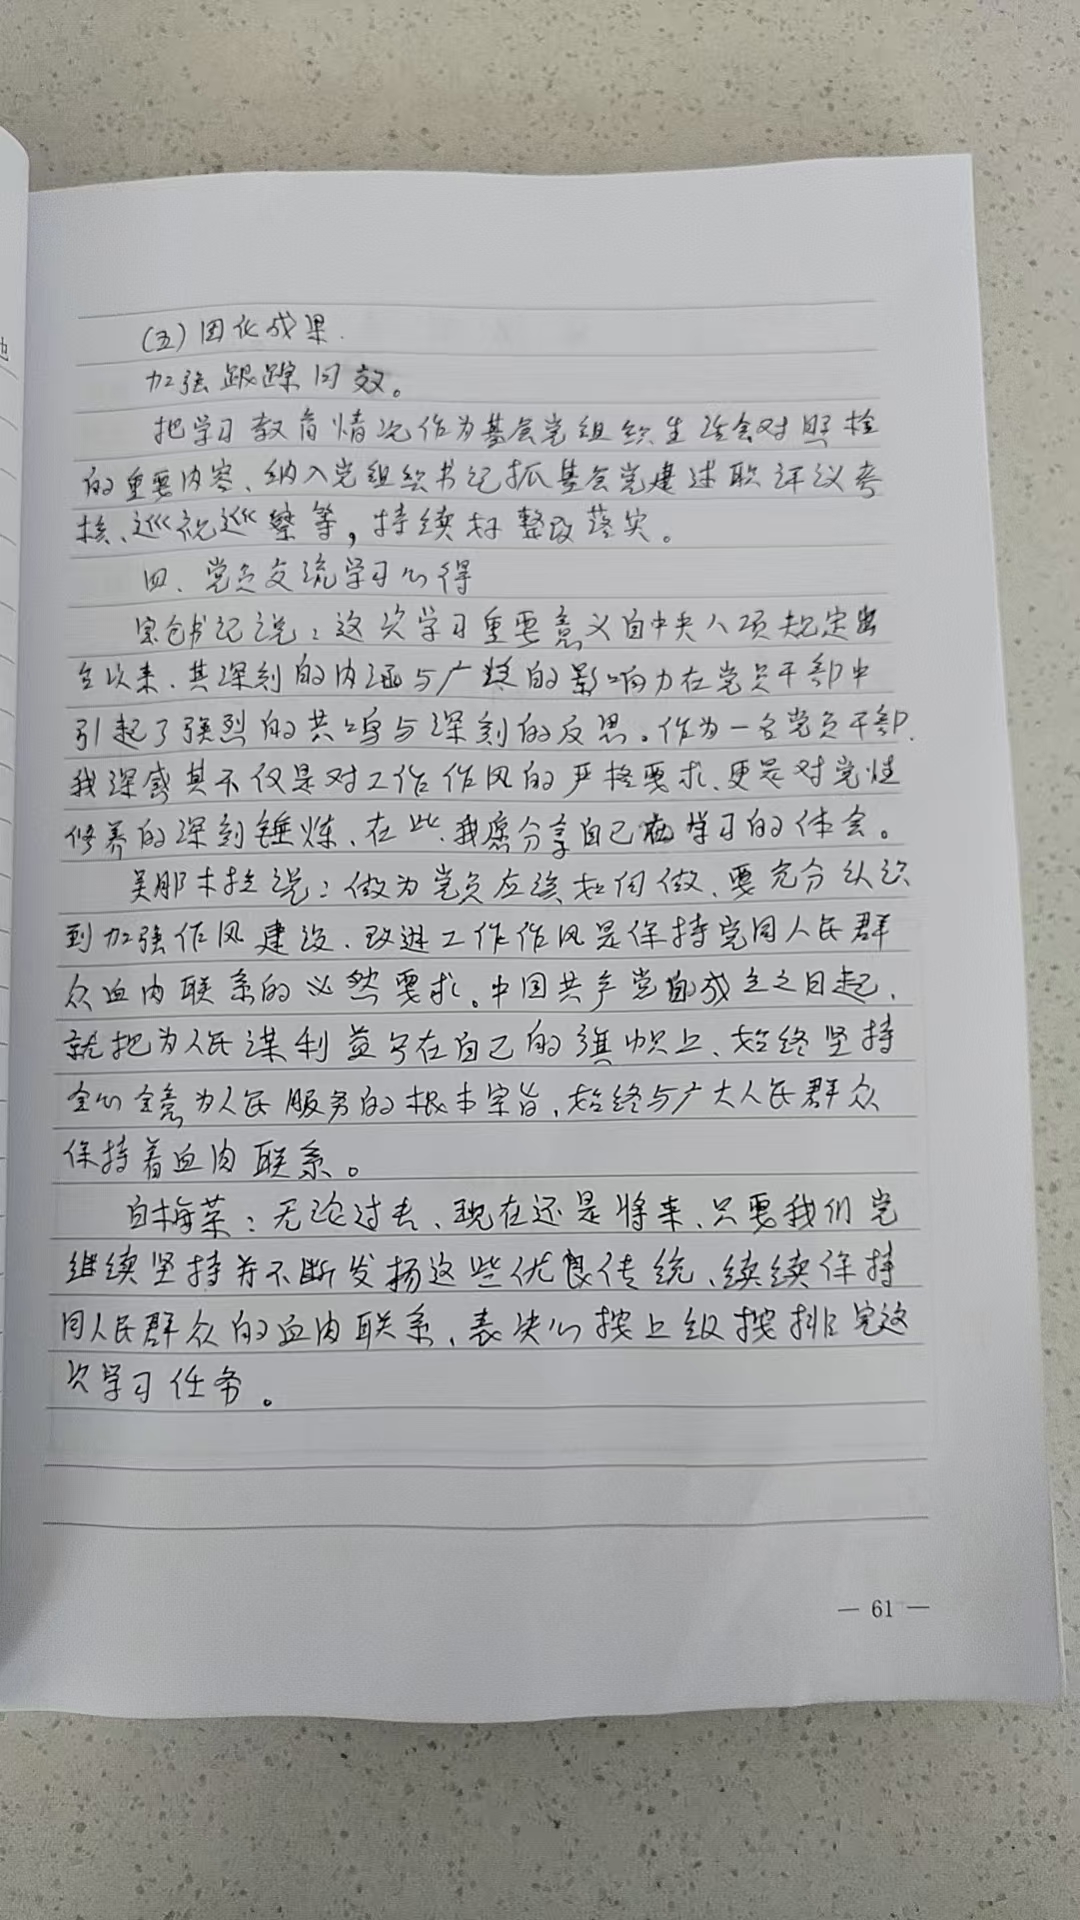 (五)固化成果.
加强跟踪问效。
把学习教育情况作为基层党组织生活会对照检
的重要内容、纳入党组织书记抓基层党建述职评议考
核、巡视巡察等，持续好整改落实。
四、党员交流学习心得
书记说：这次学习重要意义自中央八项规定出
台以来、其深刻的内涵与广泛的影响力在党员干部中
引起了强烈的共鸣与深刻的反思。作为一名党员干部、
我深感其不仅是对工作作风的严格要求、更是对党性
修养的深刻锤炼、在此、我愿分享自己在学习的体会。
吴那木拉说：做为党员应该如何做、要充分认识
到加强作风建设、改进工作作风是保持党同人民群
众血肉联系的必然要求。中国共产党自成立之日起、
就把为人民谋利益写在自己的旗帜上、始终坚持
全心全意为人民服务的根本宗旨、始终与广大人民群众
保持着血肉联系。
白梅荣：无论过去、现在还是将来、只要我们党
继续坚持并不断发扬这些优良传统、续续保持
同人民群众的血肉联系、表决心按上级按排完这
次学习任务。
— 61 —